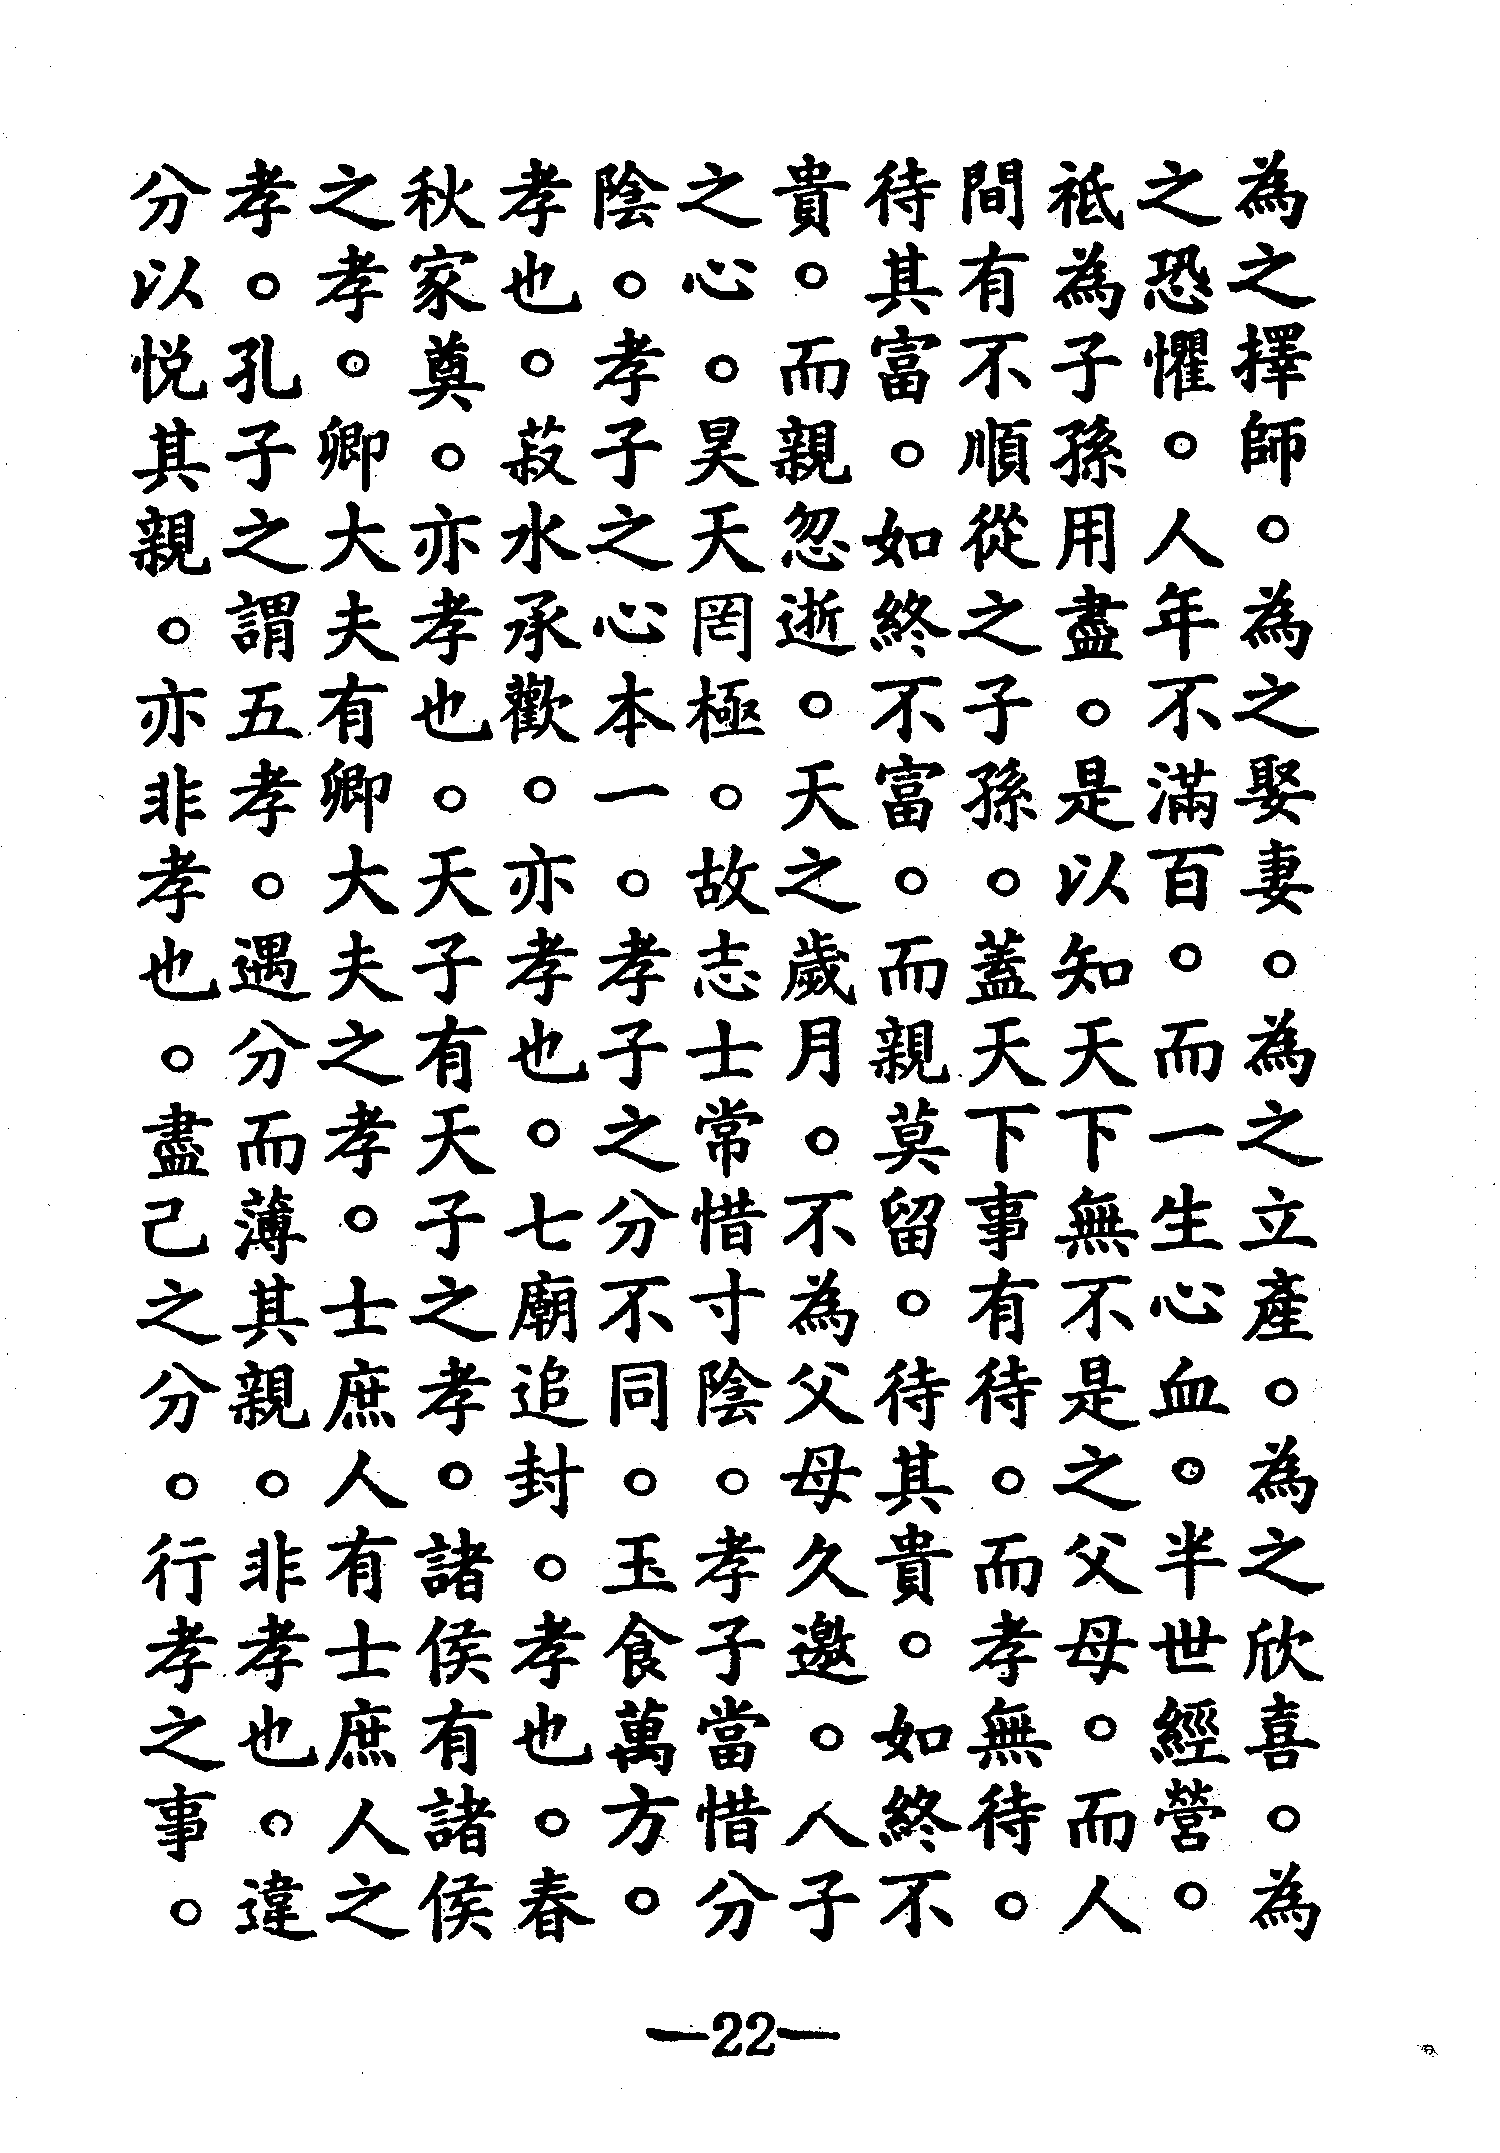 為之擇師。為之娶妻。為之立產。為之欣喜。為
之恐懼。人年不滿百。而一生心血。半世經營。
祇為子孫用盡。是以知天下無不是之父母。而人
間有不順從之子孫。蓋天下事有待。而孝無待。
待其富。如終不富。而親莫留。待其貴。如終不
貴。而親忽逝。天之歲月。不為父母久邀。人子
之心。昊天罔極。故志士常惜寸陰。孝子當惜分
陰。孝子之心本一。孝子之分不同。玉食萬方。
孝也。菽水承歡。亦孝也。七廟追封。孝也。春
秋家奠。亦孝也。天子有天子之孝。諸侯有諸侯
之孝。卿大夫有卿大夫之孝。士庶人有士庶人之
孝。孔子之謂五孝。遇分而薄其親。非孝也。違
分以悅其親。亦非孝也。盡己之分。行孝之事。
—22—